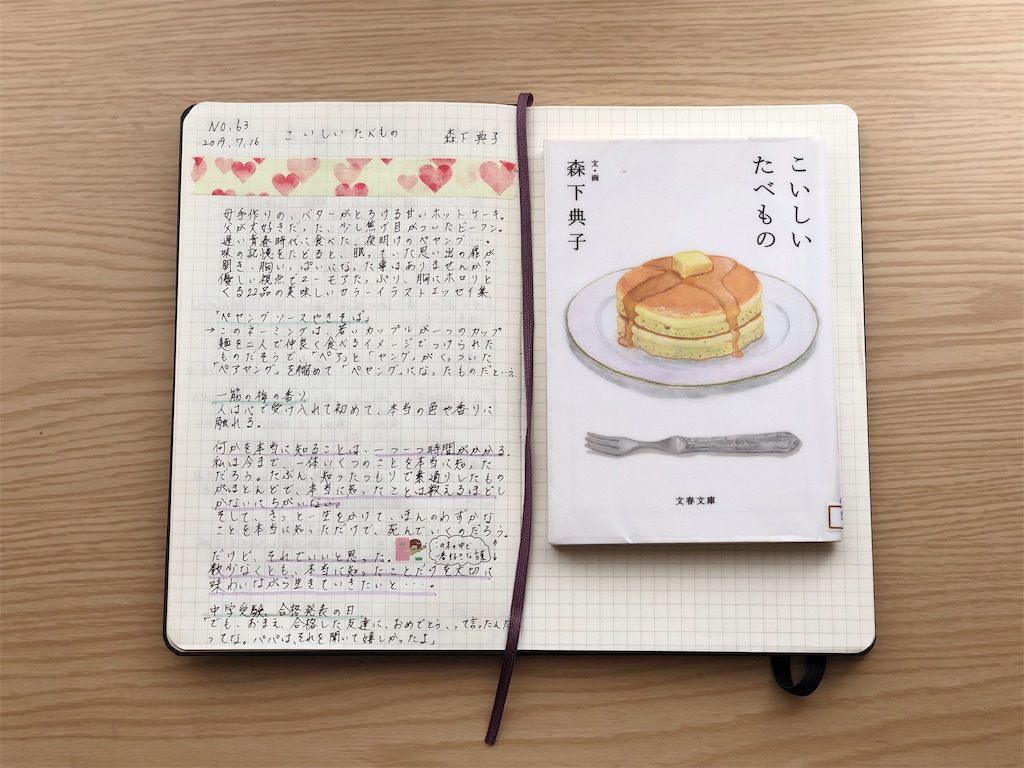 NO.63
2019.7.16
こいしいたべもの
森下典子
母手作りの、バターがとろける甘いホットケーキ。
父が大好きだった、少し焦げ目がついたビーフン。
遅い青春時代に食べた、夜明けのペヤング…。
味の記憶をたどると、眠っていた思い出の扉が
開き、胸いっぱいになった事はありませんか?
優しい視点でユーモアたっぷり、胸にホロリと
くる22品の美味しいカラーイラストエッセイ集。
「ペヤングソースやきそば」
→このネーミングは、若いカップルが一つのカップ
麺を二人で仲良く食べるイメージでつけられた
ものだそうで、「ペア」と「ヤング」がくっついた
「ペアヤング」を縮めて「ペヤング」になったものだという。
一筋の梅の香り
人は心で受け入れて初めて、本当の色や香りに
触れる。
何かを本当に知ることは、一つ一つ時間がかかる。
私は今まで、一体いくつのことを本当に知った
だろう。たぶん、知ったつもりで素通りしたもの
がほとんどで、本当に知ったことは数えるほどし
かないにちがいない。
そして、きっと一生をかけて、ほんのわずかな
ことを本当に知っただけで、死んでいくのだろう。
だけど、それでいいと思った。
この本の中で
一番好きな話
数少なくとも、本当に知ったことだけを大切に
味わいながら生きていきたいと……。
中学受験、合格発表の日
「でも、おまえ、合格した友達に、おめでとう、って言ったんだ
ってな。パパは、それを聞いて嬉しかったよ」
こいしい
たべもの
文・画
森下典子
文春文庫